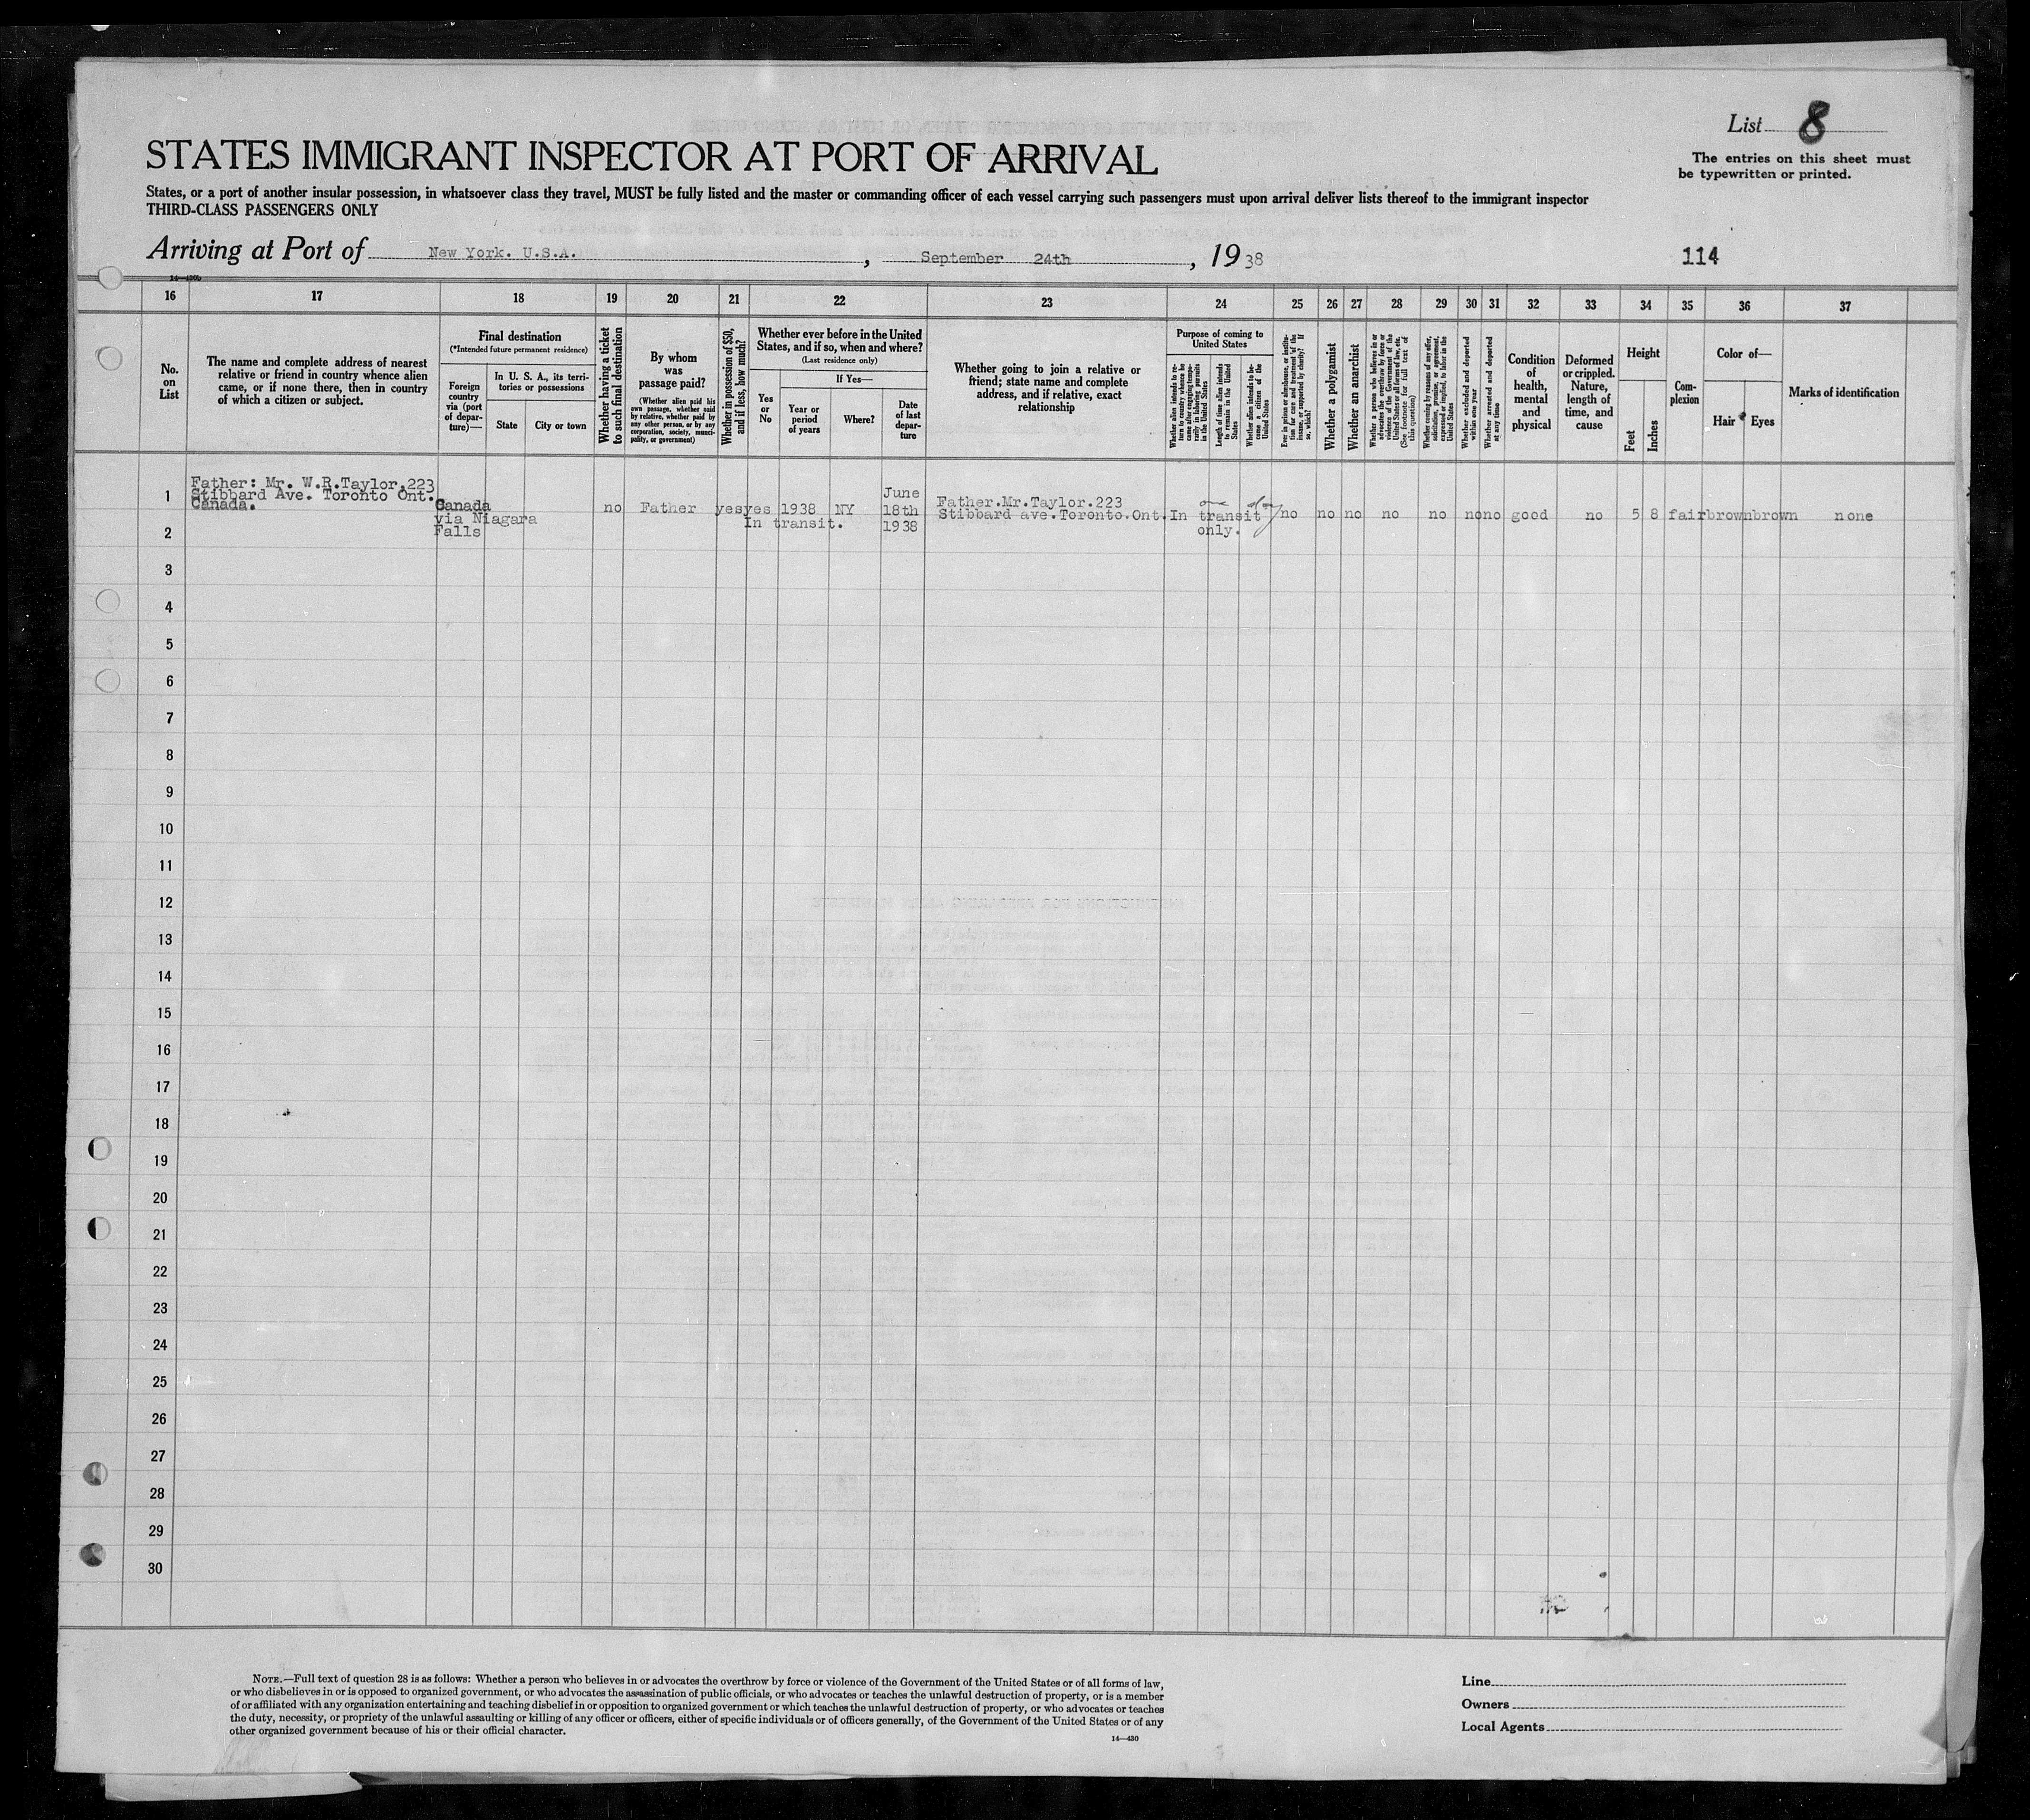 List 8
The entries on this sheet must
be typewritten or printed.
STATES IMMIGRANT INSPECTOR AT PORT OF ARRIVAL
States, or a port of another insular possession, in whatsoever class they travel, MUST be fully listed and the master or commanding officer of each vessel carrying such passengers must upon arrival deliver lists thereof to the immigrant inspector
THIRD-CLASS PASSENGERS ONLY
Arriving at Port of New York. U.S.A. , September 24th , 19 38
114
14—430b
16 17 18 19 20 21 22 23 24 25 26 27 28 29 30 31 32 33 34 35 36 37
No.
on
List
The name and complete address of nearest
relative or friend in country whence alien
came, or if none there, then in country
of which a citizen or subject.
Final destination
(*Intended future permanent residence)
Foreign
country
via (port
of depar-
ture)—
In U. S. A., its terri-
tories or possessions
State
City or town
Whether having a ticket
to such final destination
By whom
was
passage paid?
(Whether alien paid his
own passage, whether paid
by relative, whether paid by
any other person, or by any
corporation, society, munici-
pality, or government)
Whether in possession of $50,
and if less, how much?
Whether ever before in the United
States, and if so, when and where?
(Last residence only)
Yes
or
No
If Yes—
Year or
period
of years
Where?
Date
of last
depar-
ture
Whether going to join a relative or
friend; state name and complete
address, and if relative, exact
relationship
Purpose of coming to
United States
Whether alien intends to re-
turn to country whence he
came after engaging tempo-
rarily in laboring pursuits
in the United States
Length of time alien intends
to remain in the United
States
Whether alien intends to be-
come a citizen of the
United States
Ever in prison or almshouse, or institu-
tion for care and treatment of the
insane, or supported by charity? If
so, which?
Whether a polygamist
Whether an anarchist
Whether a person who believes in or
advocates the overthrow by force or
violence of the Government of the
United States or all forms of law, etc.
(See footnote for full text of
this question)
Whether coming by reasons of any offer,
solicitation, promise, or agreement,
expressed or implied, to labor in the
United States
Whether excluded and deported
within one year
Whether arrested and deported
at any time
Condition
of
health,
mental
and
physical
Deformed
or crippled.
Nature,
length of
time, and
cause
Height
Feet
Inches
Com-
plexion
Color of—
Hair
Eyes
Marks of identification
1
Father: Mr. W.R.Taylor.223
Stibbard Ave. Toronto Ont.
Canada.
Canada
via Niagara
Falls
no
Father
yes
yes 1938 NY
In transit.
June
18th
1938
Father.Mr.Taylor.223
Stibbard ave.Toronto.Ont.
one day
In transit
only.
no no no no no no no good no 5 8 fair brown brown none
2
3
4
5
6
7
8
9
10
11
12
13
14
15
16
17
18
19
20
21
22
23
24
25
26
27
28
29
30
NOTE.—Full text of question 28 is as follows: Whether a person who believes in or advocates the overthrow by force or violence of the Government of the United States or of all forms of law,
or who disbelieves in or is opposed to organized government, or who advocates the assassination of public officials, or who advocates or teaches the unlawful destruction of property, or is a member
of or affiliated with any organization entertaining and teaching disbelief in or opposition to organized government or which teaches the unlawful destruction of property, or who advocates or teaches
the duty, necessity, or propriety of the unlawful assaulting or killing of any officer or officers, either of specific individuals or of officers generally, of the Government of the United States or of any
other organized government because of his or their official character.
14—430
Line
Owners
Local Agents